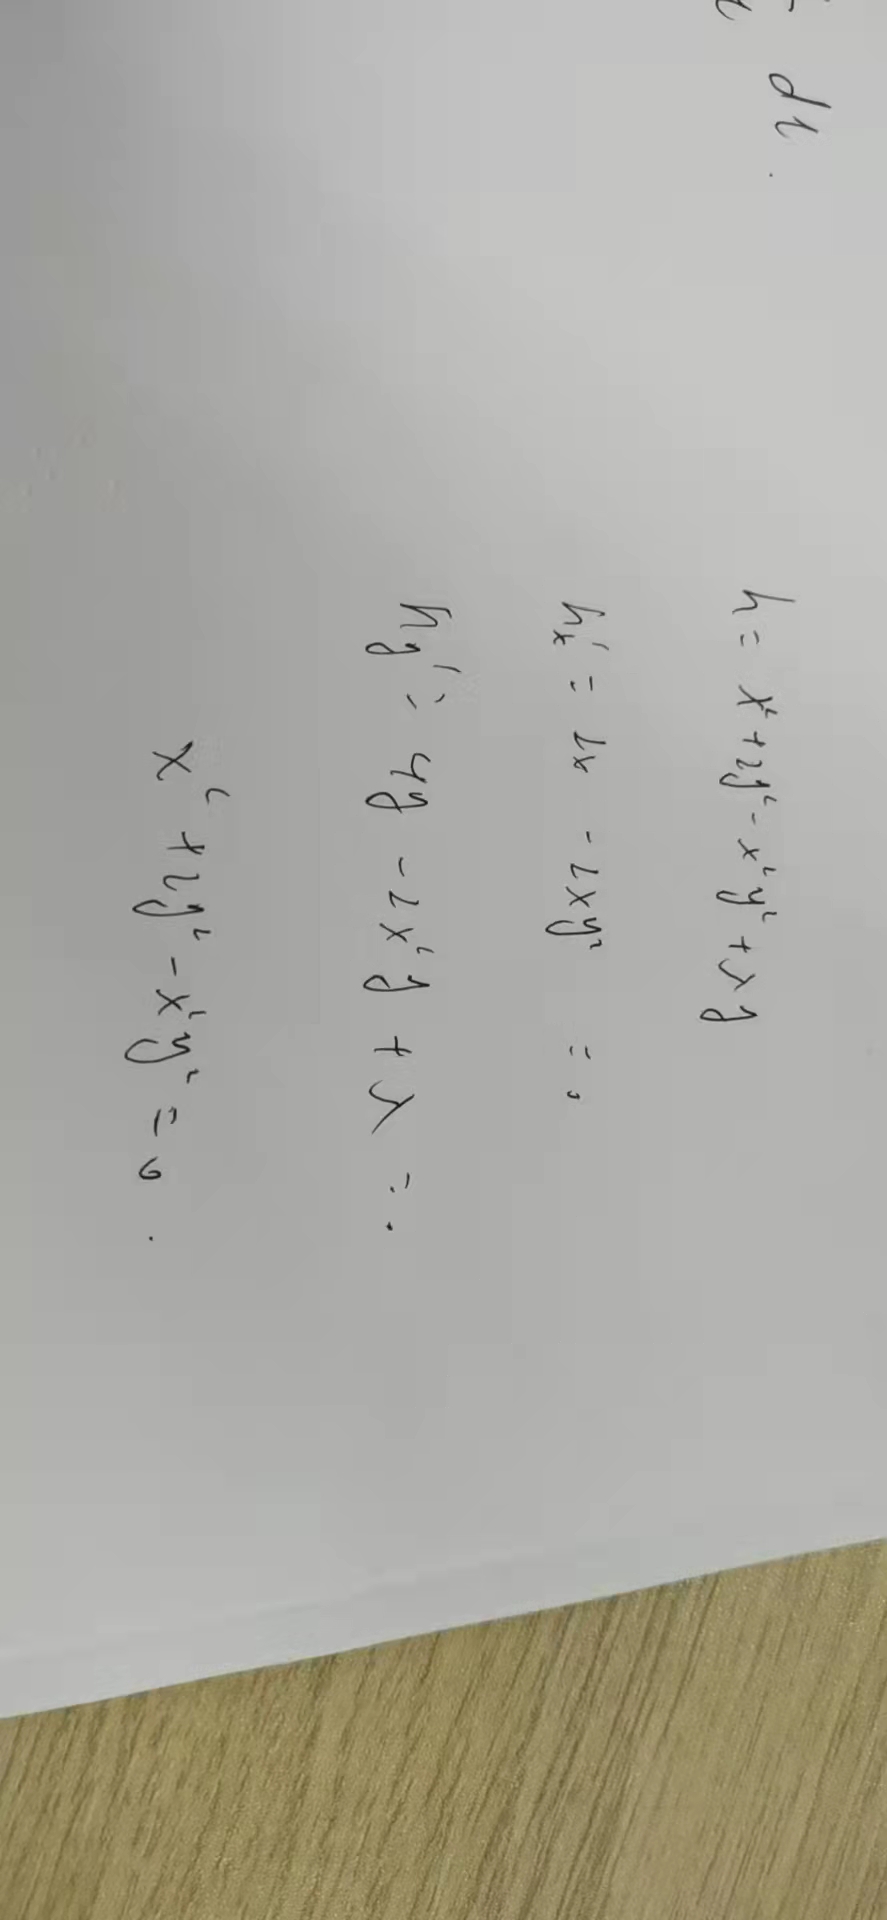 dt.
h = x²+2y²-x²y²+λy
h'ₓ = 2x - 2xy² = 0
h'y = 4y - 2x²y + λ = 0
x² + 2y² - x²y² = 0.